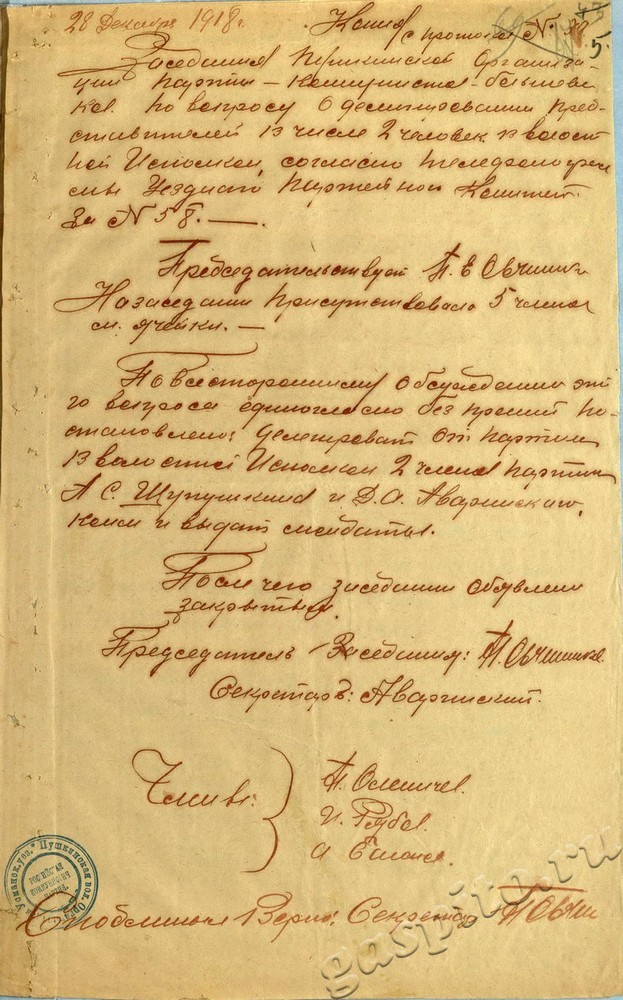 28 Декабря 1918 г.
Копия
с протокола №
5.
Заседания Организа-
ции партии - Коммунистов - большеви-
ков. По вопросу о делегировании пред-
ставителей в числе 2 человек в волост
ной Исполком, согласно телефонограм
мы Уездного Партейного Комитет.
За № 58. —
Председательствует П. Е. Овчинни
На заседании присутствовало 5 членов
ячейки. —
По всестороннему обсуждению это
го вопроса единогласно без прений по-
становлено: делегироват от партии
в волостной Исполком 2 члена партии
А С. Щупушкина и Д. А. Аваринского,
коим и выдат мандаты.
После чего заседание объявлено
закрытым.
Председатель Заседания: П. Овчинников
Секретарь: Аваринский.
Члены:
П.
И.
С подлинным Верно: Секретар П Овчин
Усманск. уез. Пушкинская вол. Орг.
РОССІЙСКАЯ
КОММУНИСТИЧ.
ПАРТІЯ.
gaspito.ru